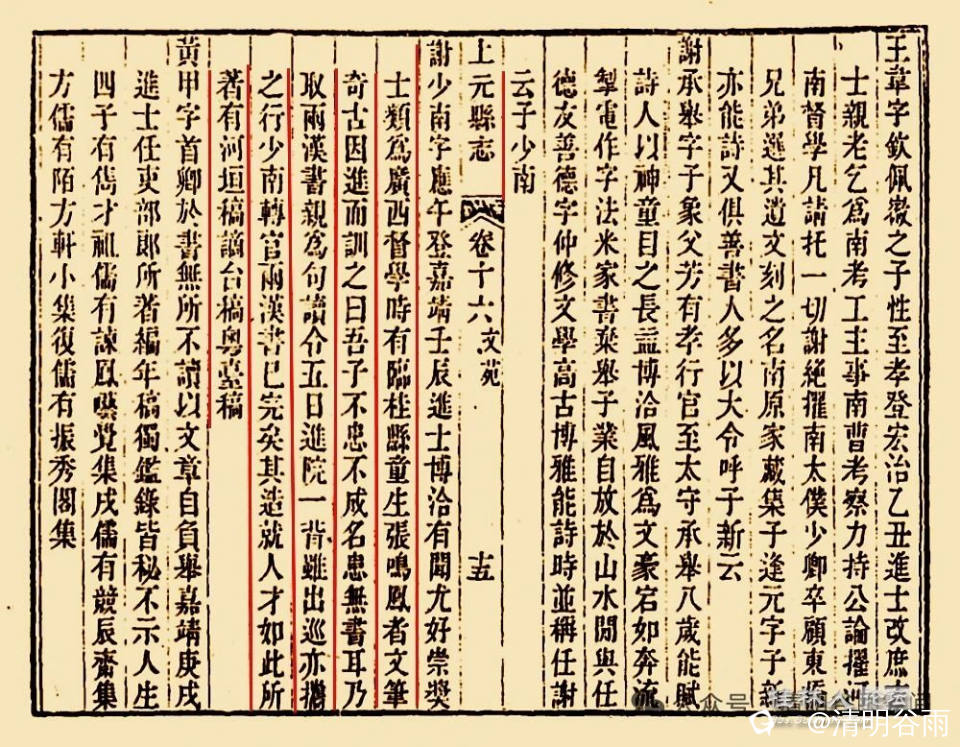 王韋字欽佩徽之子性至孝登宏治乙丑進士改庶
士親老乞爲南考工主事南曹考察力持公論擢河
南督學凡請托一切謝絕擢南太僕少卿卒顧東橋
兄弟選其遺文刻之名南原家藏集子逢元字子新
亦能詩又俱善書人多以大令呼子新云
謝承舉字子象父芳有孝行官至太守承舉八歲能賦
詩人以神童目之長益博洽風雅爲文豪宕如奔流
掣電作字法米家書棄舉子業自放於山水間與任
德友善德字仲修文學高古博雅能詩時並稱任謝
云子少南
上元縣志 卷十六 文苑 十五
謝少南字應午登嘉靖壬辰進士博洽有聞尤好崇獎
士類爲廣西督學時有臨桂縣童生張鳴鳳者文筆
奇古因進而訓之曰吾子不患不成名患無書耳乃
取兩漢書親爲句讀令五日進院一背雖出巡亦攜
之行少南轉官兩漢書已完矣其造就人才如此所
著有河垣稿謫台稿粵臺稿
黃甲字首卿於書無所不讀以文章自負舉嘉靖庚戌
進士任吏部郎所著編年稿獨鑑錄皆秘不示人生
四子有雋才祖儒有諫鳳囈覺集戌儒有競辰齋集
方儒有陌方軒小集復儒有振秀閣集
@清明谷雨